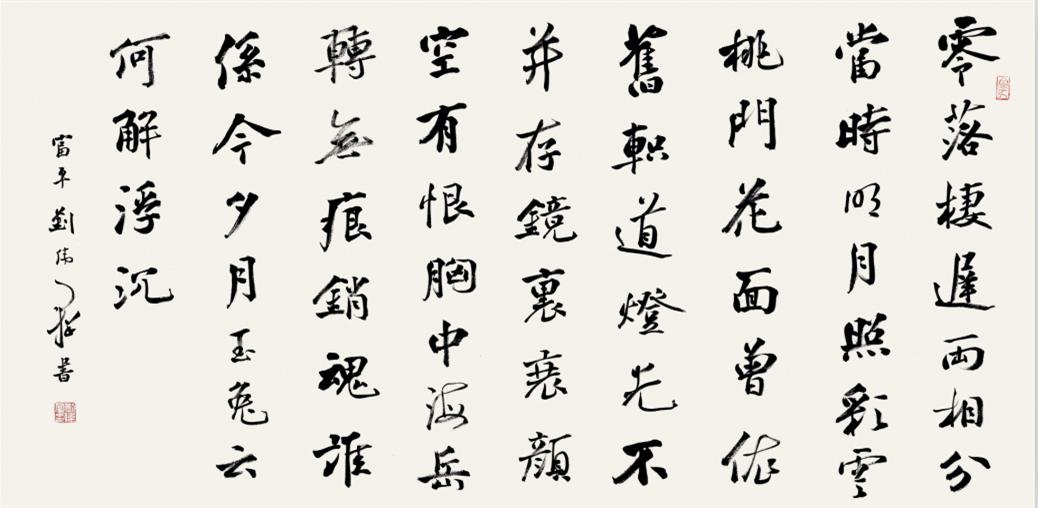 零落棲遲両相分
當時明月照彩雲
桃門花面曾依
舊軹道燈光不
并存鏡裏衰顏
空有恨胸中海岳
轉無痕銷魂誰
係今夕月玉兔云
何解浮沉
富平劉偉書